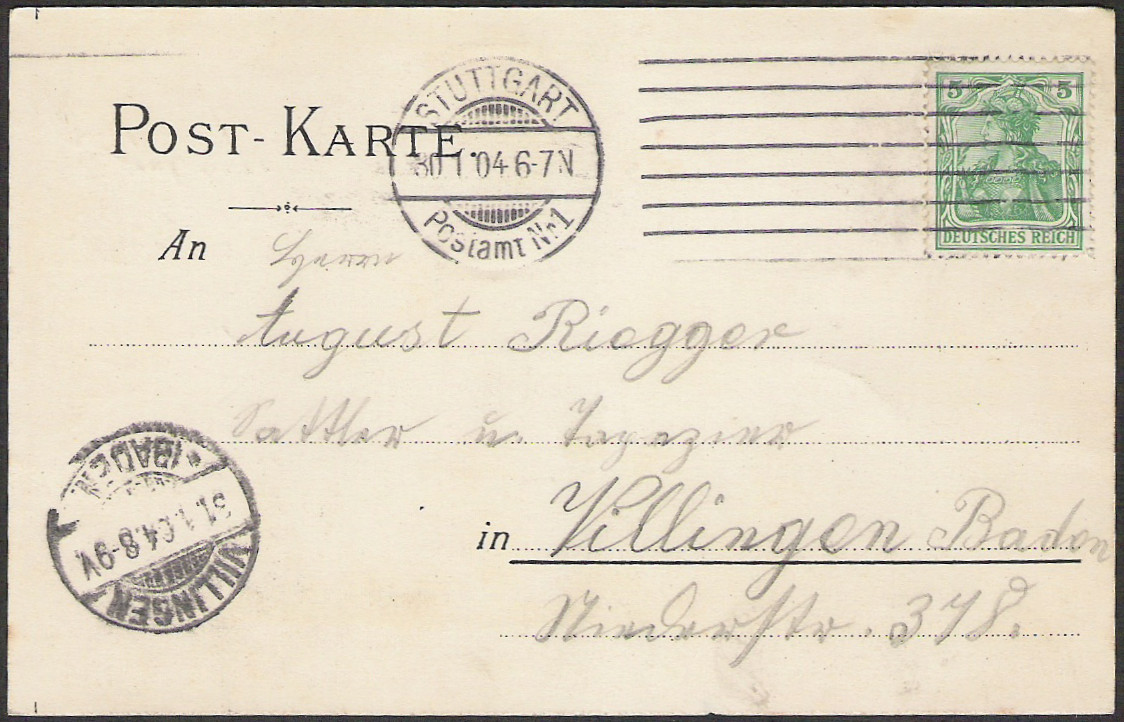 POST-KARTE.
STUTTGART
30 1 04 6-7N
Postamt Nr1
5 5
DEUTSCHES REICH
An Herrn
August Riegger
Sattler u. Tapezier
in Villingen Baden
Niederstr. 378.
(BADEN)
31.1.04.8-9V.
VILLINGEN